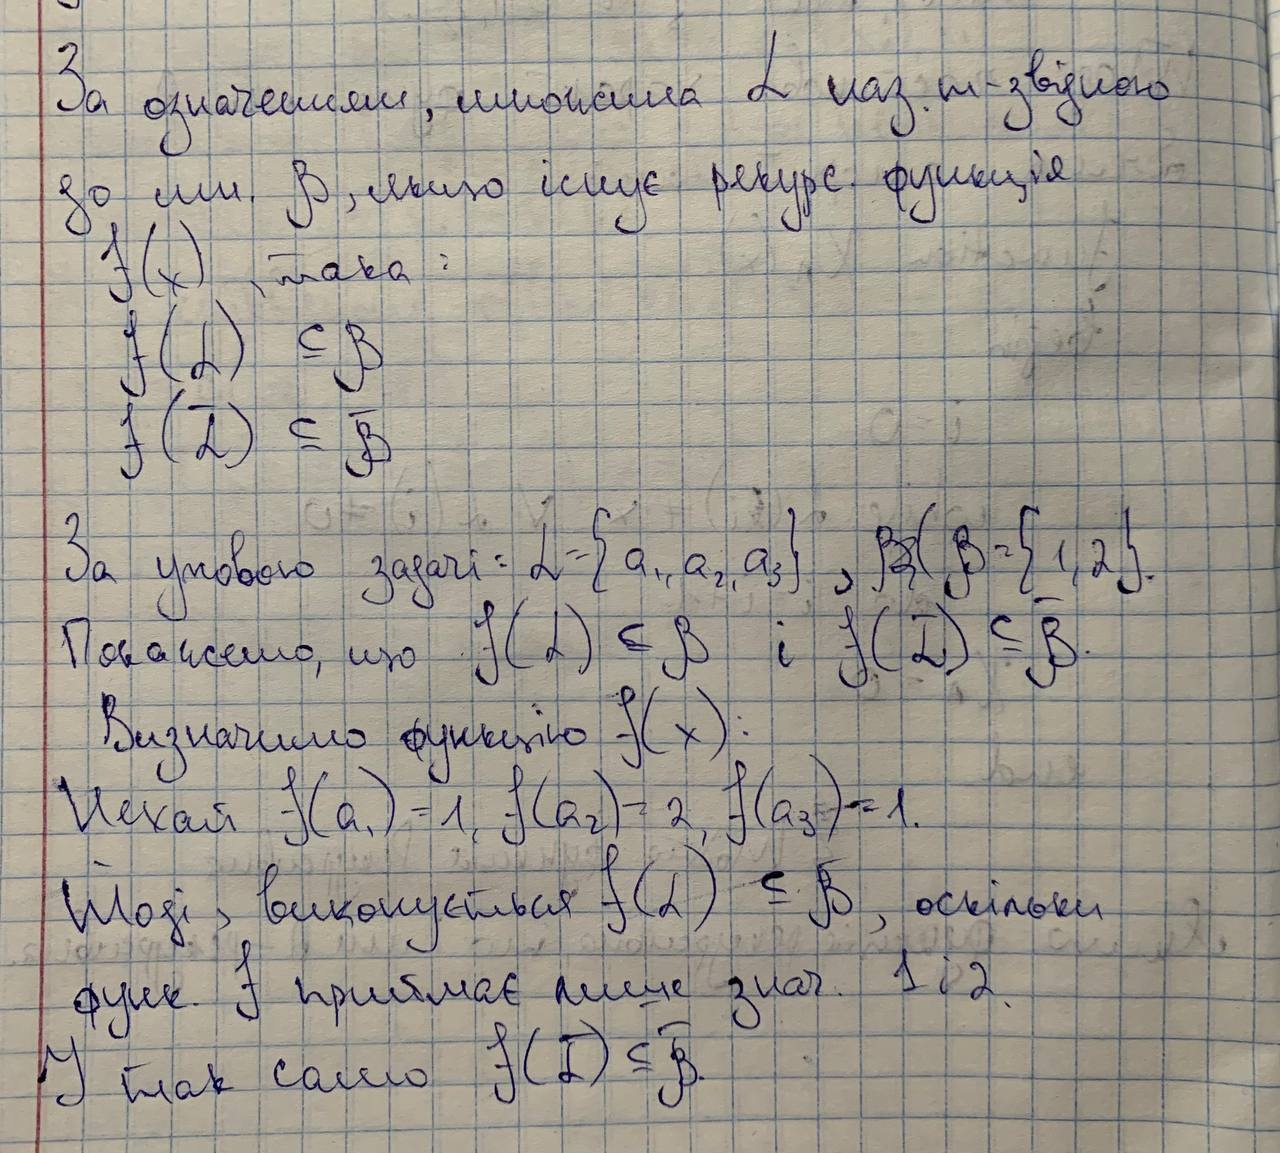 За означенням, множина L наз. m-звідною
до мн. B, якщо існує рекурс. функція
f(x), така:
f(L) ⊆ B
f(L̅) ⊆ B̅
За умовою задачі: L={a₁, a₂, a₃}, B={1,2}.
Покажемо, що f(L) ⊆ B і f(L̅) ⊆ B̅.
Визначимо функцію f(x):
Нехай f(a₁)=1, f(a₂)=2, f(a₃)=1.
Тоді, виконується f(L) ⊆ B, оскільки
функ. f приймає лише знач. 1 і 2.
І так само f(L̅) ⊆ B̅.